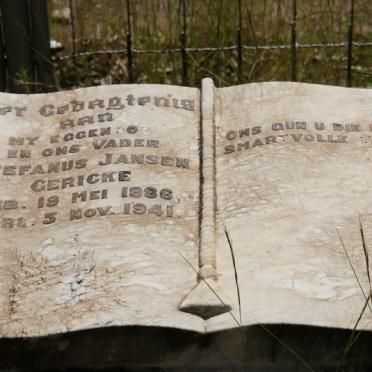 er Gedagtenis
aan
my eggen o
en ons vader
efanus Jansen
Gericke
eb. 19 Mei 1886
rl. 5 Nov. 1941.
Ons gun u die
smartvolle